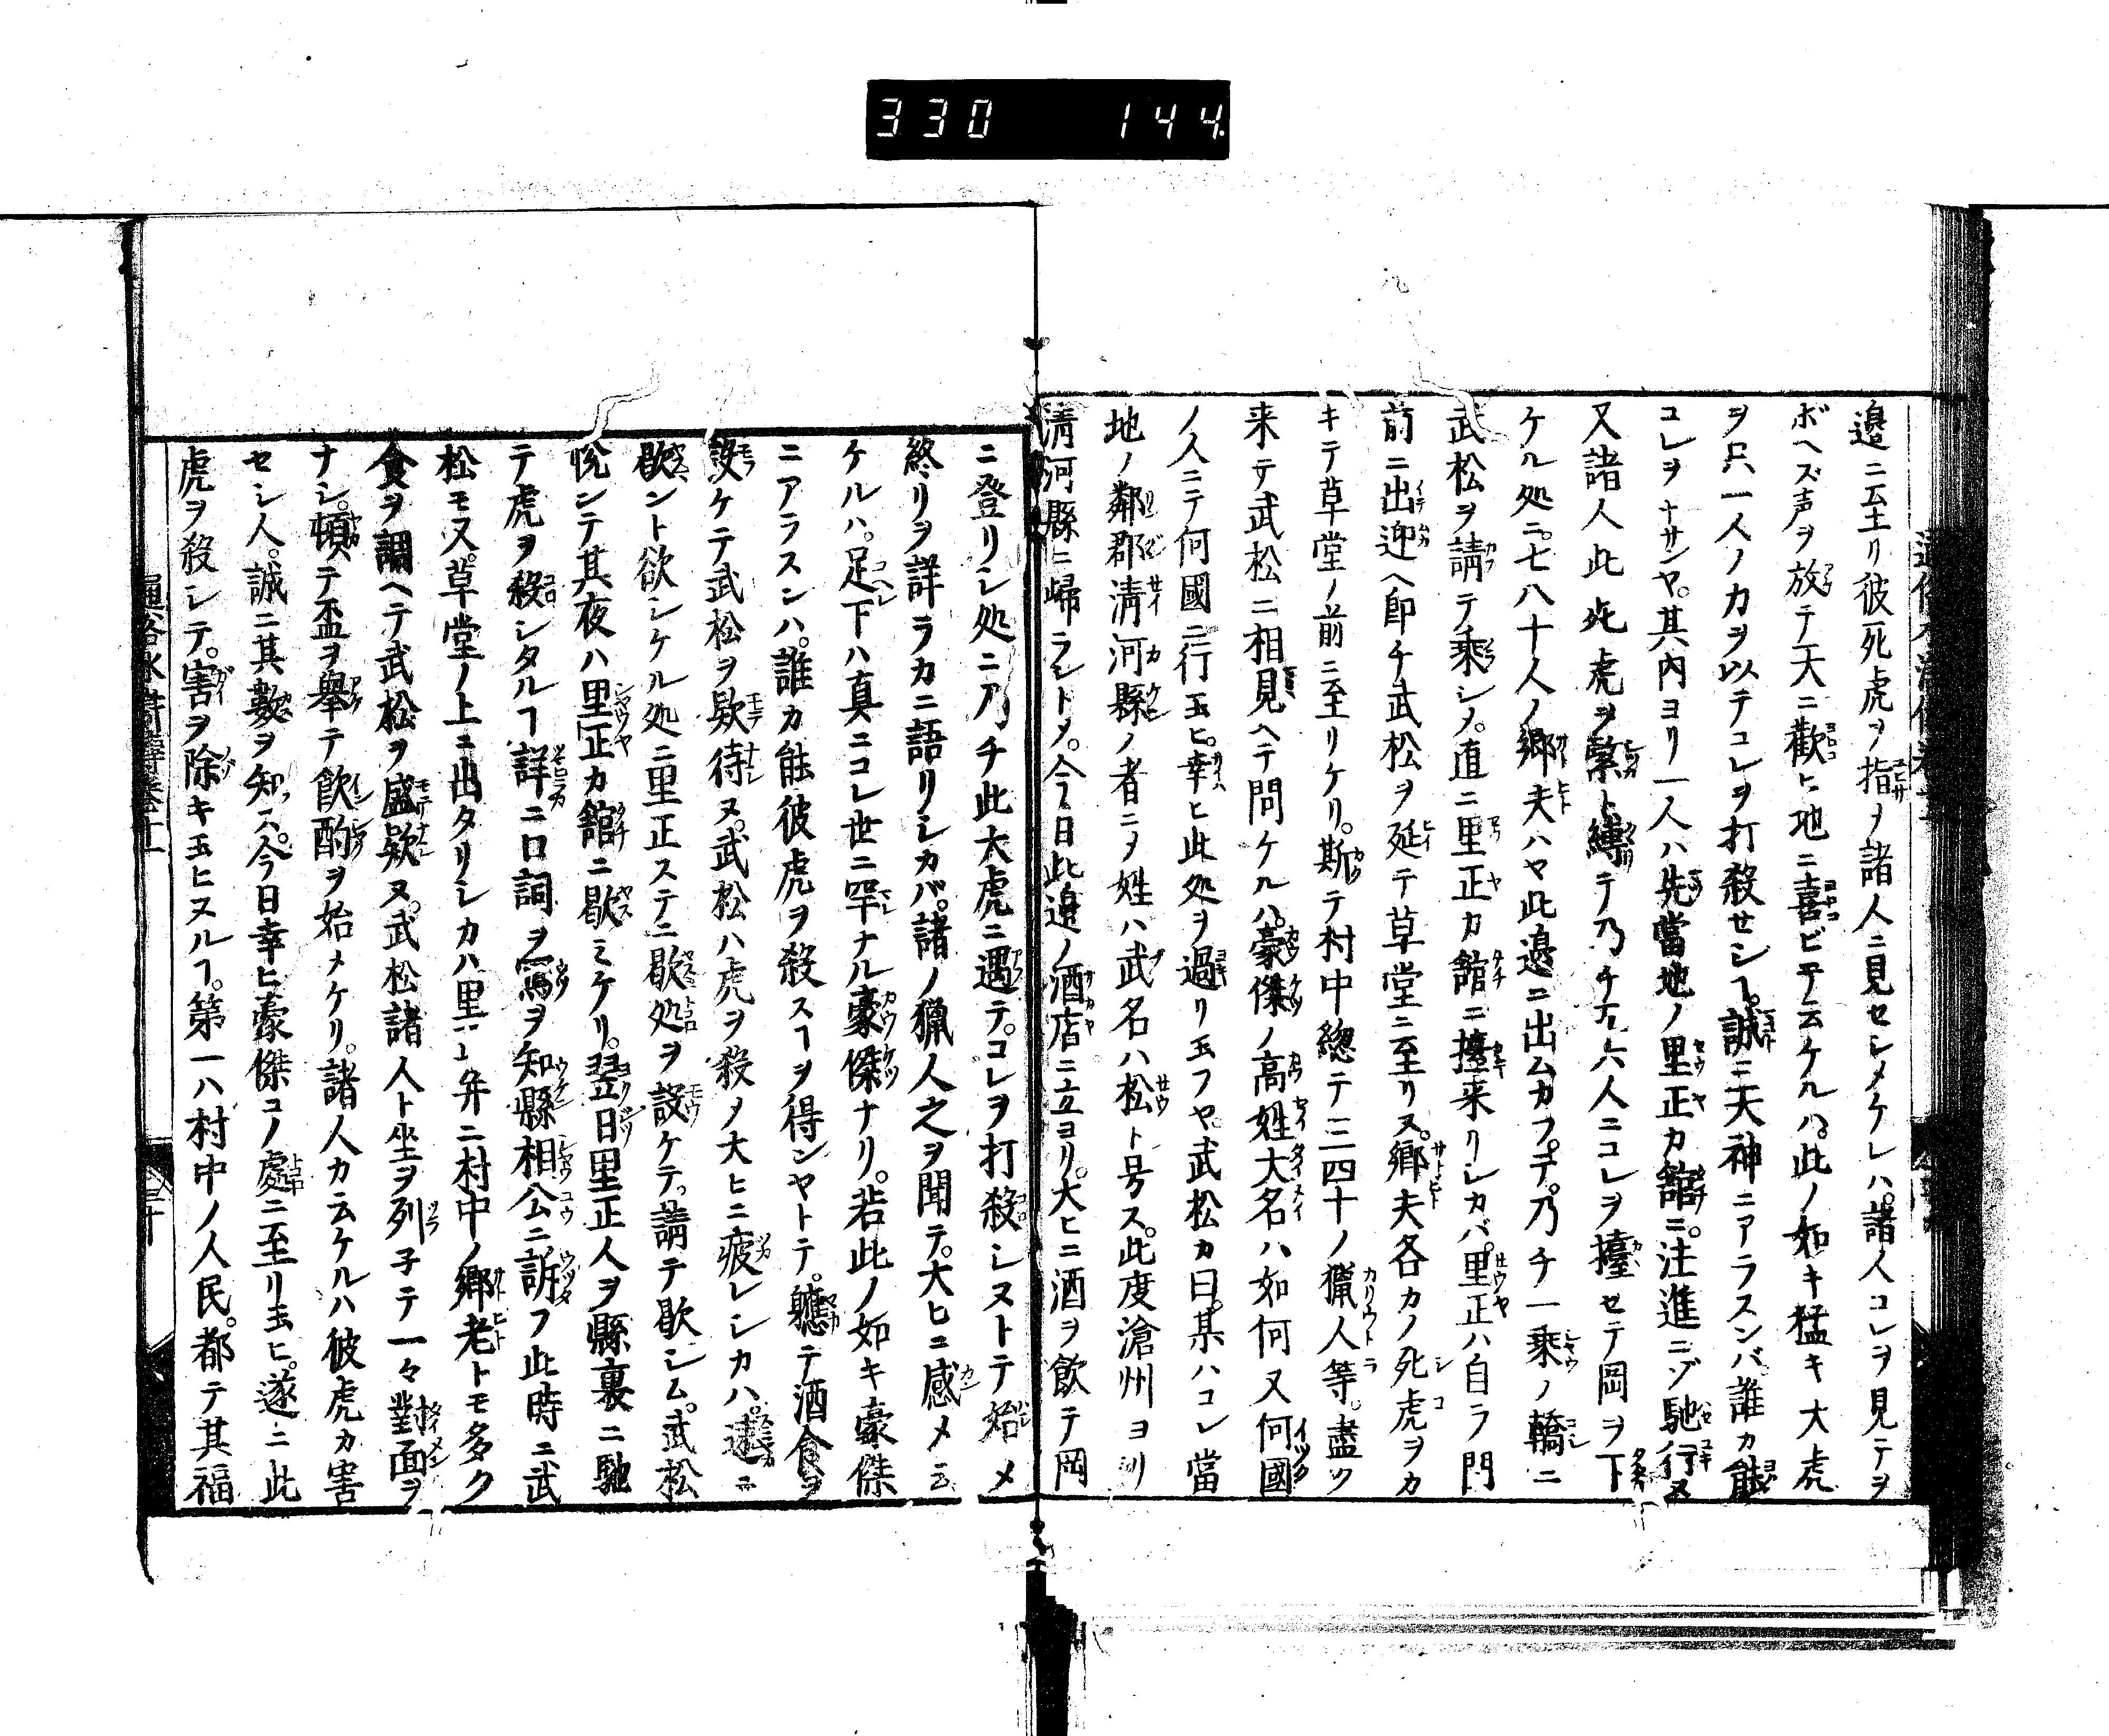 330 144.
邉ニ至リ彼死虎ヲ指ノ諸人ニ見セシメケレハ。諸人コレヲ見テヲ
ボヘズ声ヲ放テ天ニ歡ヒ地ニ喜ビテ云ケルハ。此ノ如キ猛キ大虎
ヲ只一人ノカヲ以テコレヲ打殺セシヿ。誠ニ天神ニアラスンバ誰カ能
コレヲナサンヤ。其内ヨリ一人ハ先當地ノ里正カ舘ニ。注進ニゾ馳行ヌ
又諸人此死虎ヲ緊ト縛テ乃チ五六人ニコレヲ擡セテ岡ヲ下
ケル処ニ。七八十人ノ郷夫ハヤ此邉ニ出ムカフテ。乃チ一乗ノ轎ニ
武松ヲ請テ乗シメ。直ニ里正カ舘ニ擡来リレカバ。里正ハ自ラ門
前ニ出迎ヘ即チ武松ヲ延テ草堂ニ至リヌ。郷夫各カノ死虎ヲカ
キテ草堂ノ前ニ至リケリ。斯テ村中總テ三四十ノ獵人等。盡ク
来テ武松ニ相見ヘテ問ケルハ。豪傑ノ高姓大名ハ如何又何國
ノ人ニテ何國ニ行玉ヒ。幸ヒ此処ヲ過リ玉フヤ。武松カ曰。某ハコレ當
地ノ鄰郡清河縣ノ者ニヲ姓ハ武名ハ松ト号ス。此度滄州ヨリ
清河縣ニ歸ラントメ。今日此邉ノ酒店ニ立ヨリ。大ヒニ酒ヲ飲テ岡
ニ登リシ処ニ乃チ此大虎ニ遇テ。コレヲ打殺シヌトテ始メ
終リヲ詳ラカニ語リシカバ。諸ノ獵人之ヲ聞テ。大ヒニ感メ云
ケルハ。足下ハ真ニコレ世ニ罕ナル豪傑ナリ。若此ノ如キ豪傑
ニアラスンハ。誰カ能彼虎ヲ殺スヿヲ得ンヤトテ。軈テ酒食ヲ
設ケテ武松ヲ欵待ヌ。武松ハ虎ヲ殺メ大ヒニ疲レシカハ。速ニ
歇ント欲シケル処ニ里正ステニ歇処ヲ設ケテ。請テ歇シム。武松
悦ンテ其夜ハ里正カ舘ニ歇ミケリ。翌日里正人ヲ縣裏ニ馳
テ虎ヲ殺シタルヿ詳ニ口詞ヲ寫ヲ知縣相公ニ訴フ此時ニ武
松モ又。草堂ノ上ニ出タリシカハ里正幷ニ村中ノ郷老トモ多ク
食ヲ調ヘテ武松ヲ盛欵ヌ。武松諸人ト坐ヲ列子テ一々對面ヲ
ナシ。頓テ盃ヲ擧テ飲酌ヲ始メケリ。諸人カ云ケルハ彼虎カ害
セシ人。誠ニ其數ヲ知ス。今日幸ヒ豪傑コノ處ニ至リ玉ヒ。遂ニ此
虎ヲ殺シテ。害ヲ除キ玉ヒヌルヿ。第一ハ村中ノ人民。都テ其福